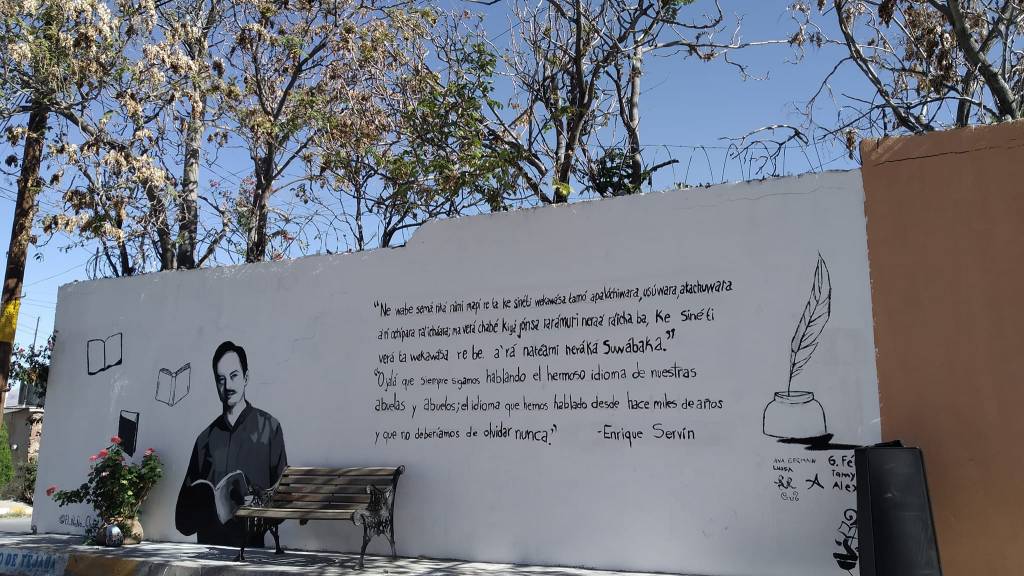 "Ne wabé semá riká nimi mapi re ta ke sinéti wekawása tamó apalóchiwara, usúwara, atachuwára
a'ni ochípara ra'ichálara; ma verá chabé kiyá jónsa rarámuri neraá ra'ícha ba, ke sinéti
verá ta wekawába re be a'rá nateami neráká Suwábaka."
"Ojalá que siempre sigamos hablando el hermoso idioma de nuestras
abuelas y abuelos; el idioma que hemos hablado desde hace miles de años
y que no deberíamos de olvidar nunca."
-Enrique Servín
ANA GERMAN
LUISA
G. Fé
Tamy
-A
Alex
O DE TEJABA